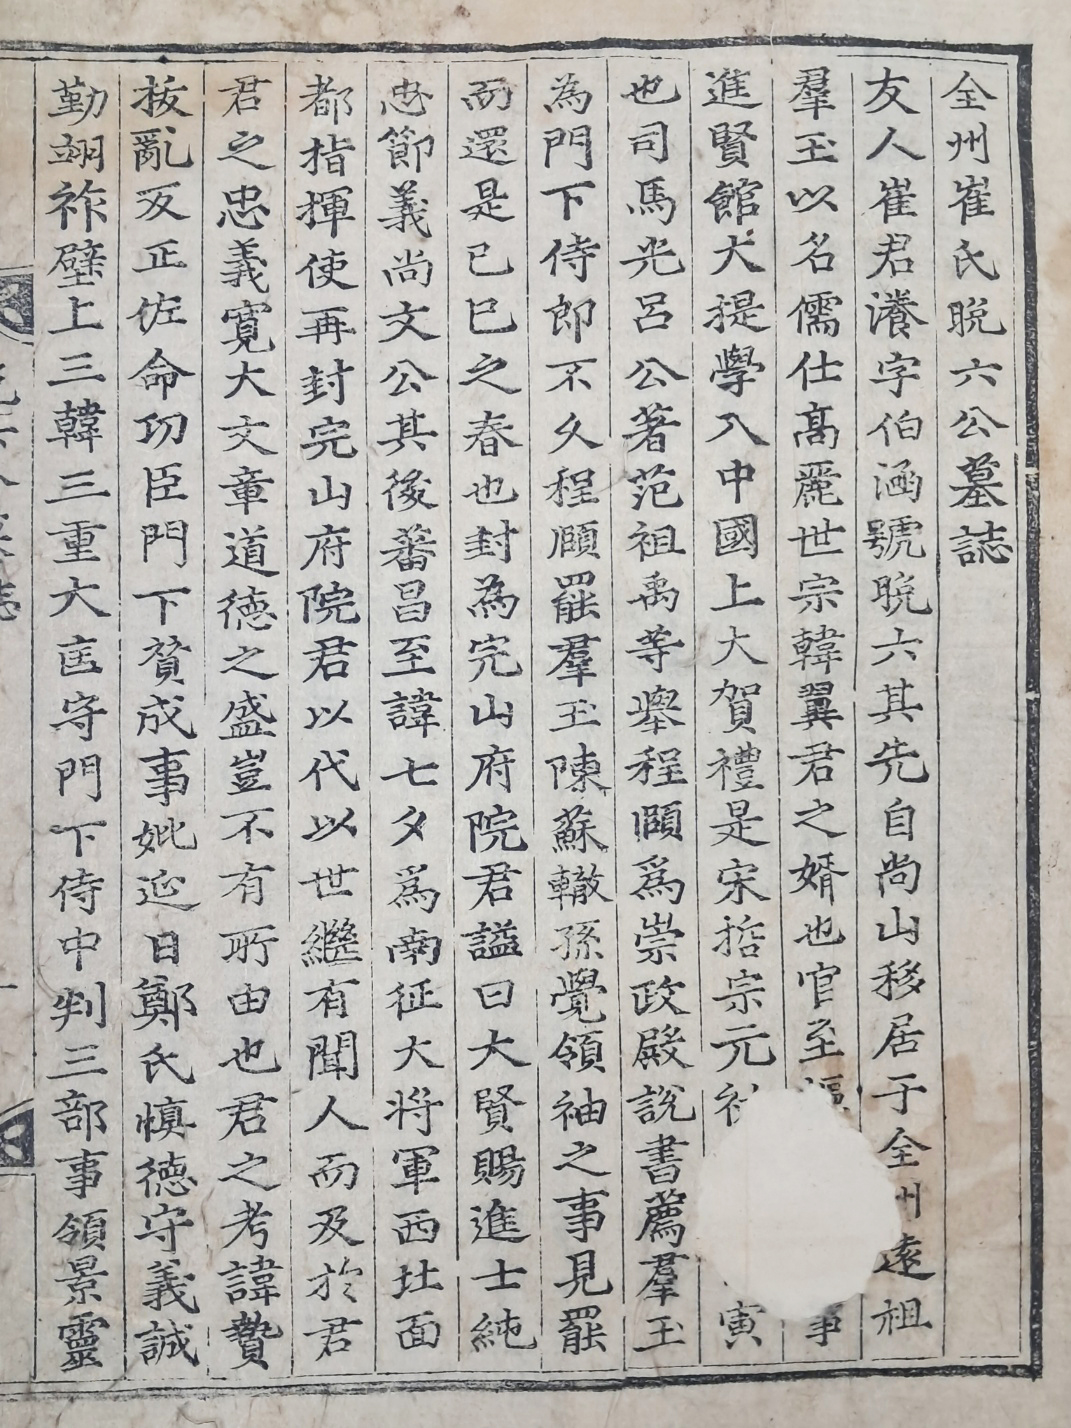 全州崔氏晩六公墓誌
友人崔君瀁字伯涵號晩六其先自尚山移居于全州遠祖
羣玉以名儒仕高麗世宗韓翼君之婿也官至樞事
進賢館大提學入中國上大賀禮是宋哲宗元寅
也司馬光呂公著范祖禹等擧程頤爲崇政殿說書薦羣玉
為門下侍郎不久程頤罷羣玉陳蘇轍孫覺領袖之事見罷
而還是已巳之春也封為完山府院君謚曰大賢賜進士純
忠節義尚文公其後蕃昌至諱七夕爲南征大將軍西北面
都指揮使再封完山府院君以代以世繼有聞人而及於君
君之忠義寬大文章道德之盛豈不有所由也君之考諱贇
拔亂反正佐命功臣門下贊成事妣迎日鄭氏愼德守義誠
勤翊祚壁上三韓三重大匡守門下侍中判三部事領景靈